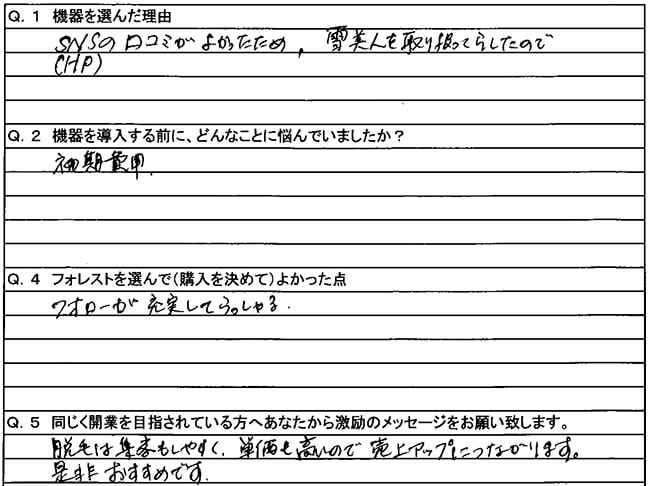 Q. 1 機器を選んだ理由
SNSの口コミがよかったため, 雪美人を取り扱ってらしたので
(HP)
Q. 2 機器を導入する前に、どんなことに悩んでいましたか？
初期費用.
Q. 4 フォレストを選んで(購入を決めて)よかった点
フォローが充実してらっしゃる.
Q. 5 同じく開業を目指されている方へあなたから激励のメッセージをお願い致します。
脱毛は集客もしやすく、単価も高いので売上アップにつながります。
是非おすすめです.